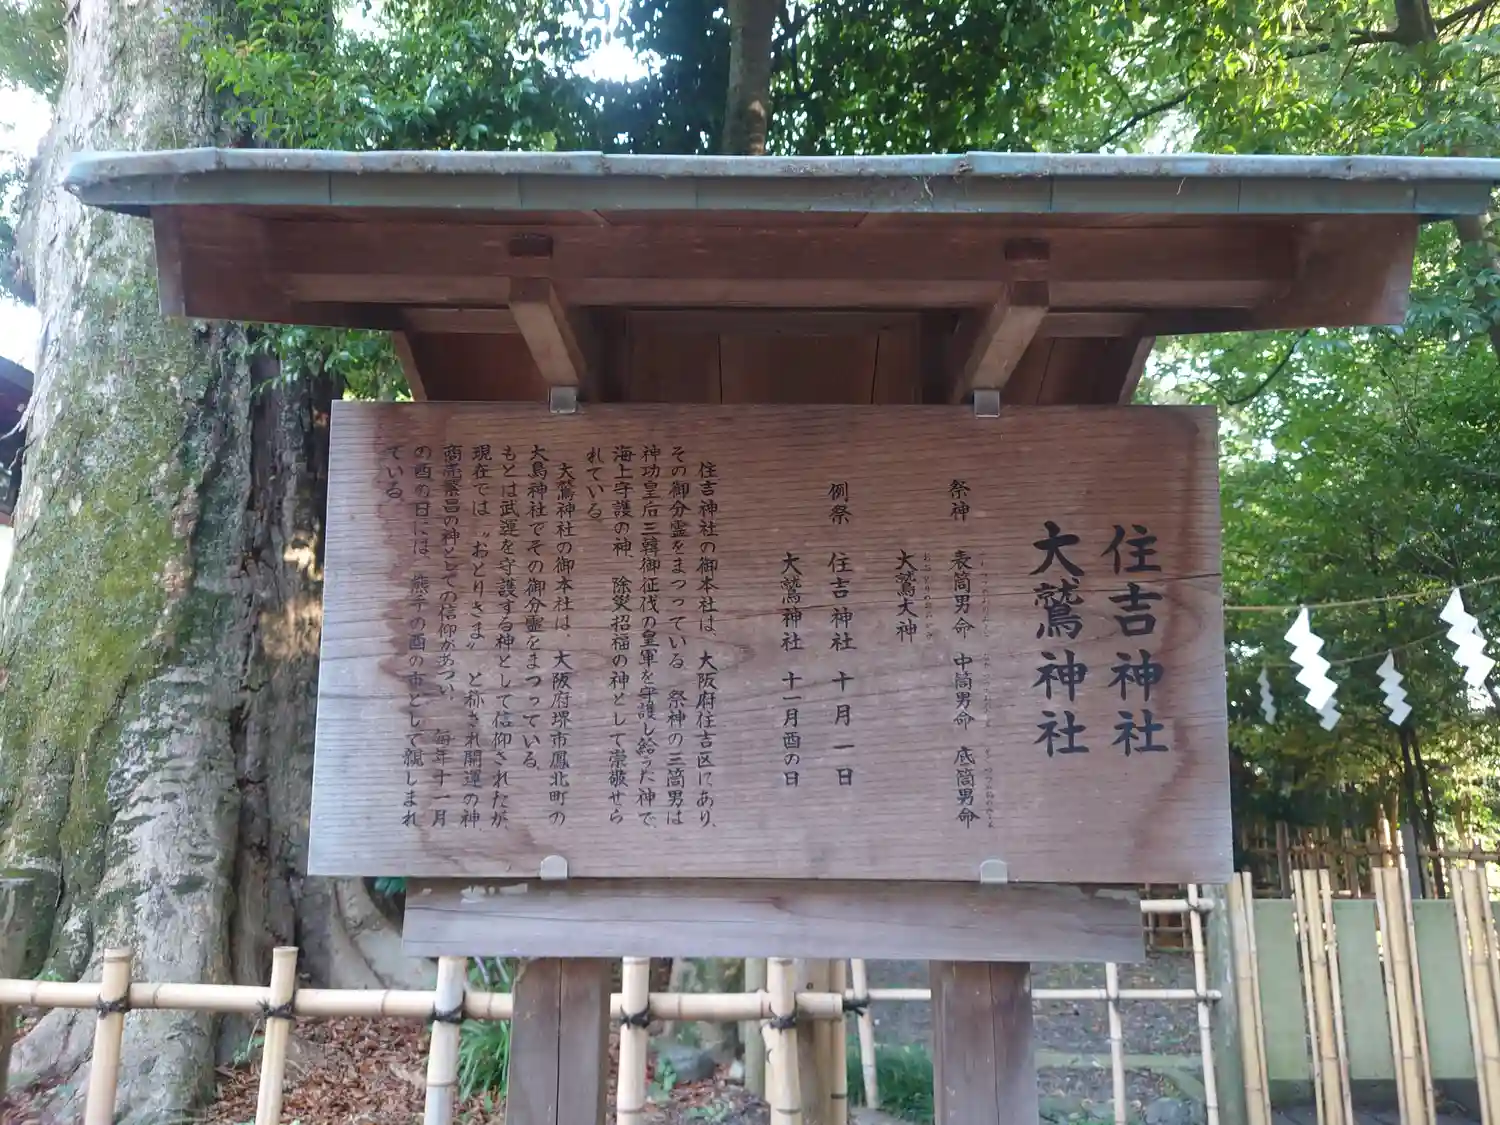 住吉神社
大鷲神社
祭神 表筒男命 中筒男命 底筒男命
大鷲大神
例祭 住吉神社 十月一日
大鷲神社 十一月酉の日
住吉神社の御本社は、大阪府住吉区にあり、
その御分霊をまつっている。祭神の三筒男は
神功皇后三韓御征伐の皇軍を守護し給うた神で、
海上守護の神 除災招福の神として崇敬せら
れている。
大鷲神社の御本社は、大阪府堺市鳳北町の
大鳥神社でその御分霊をまつっている。
もとは武運を守護する神として信仰されたが、
現在では〝おとりさま〟と称され開運の神、
商売繁昌の神としての信仰があつい。毎年十一月
の酉の日には、熊手の酉の市として親しまれ
ている。